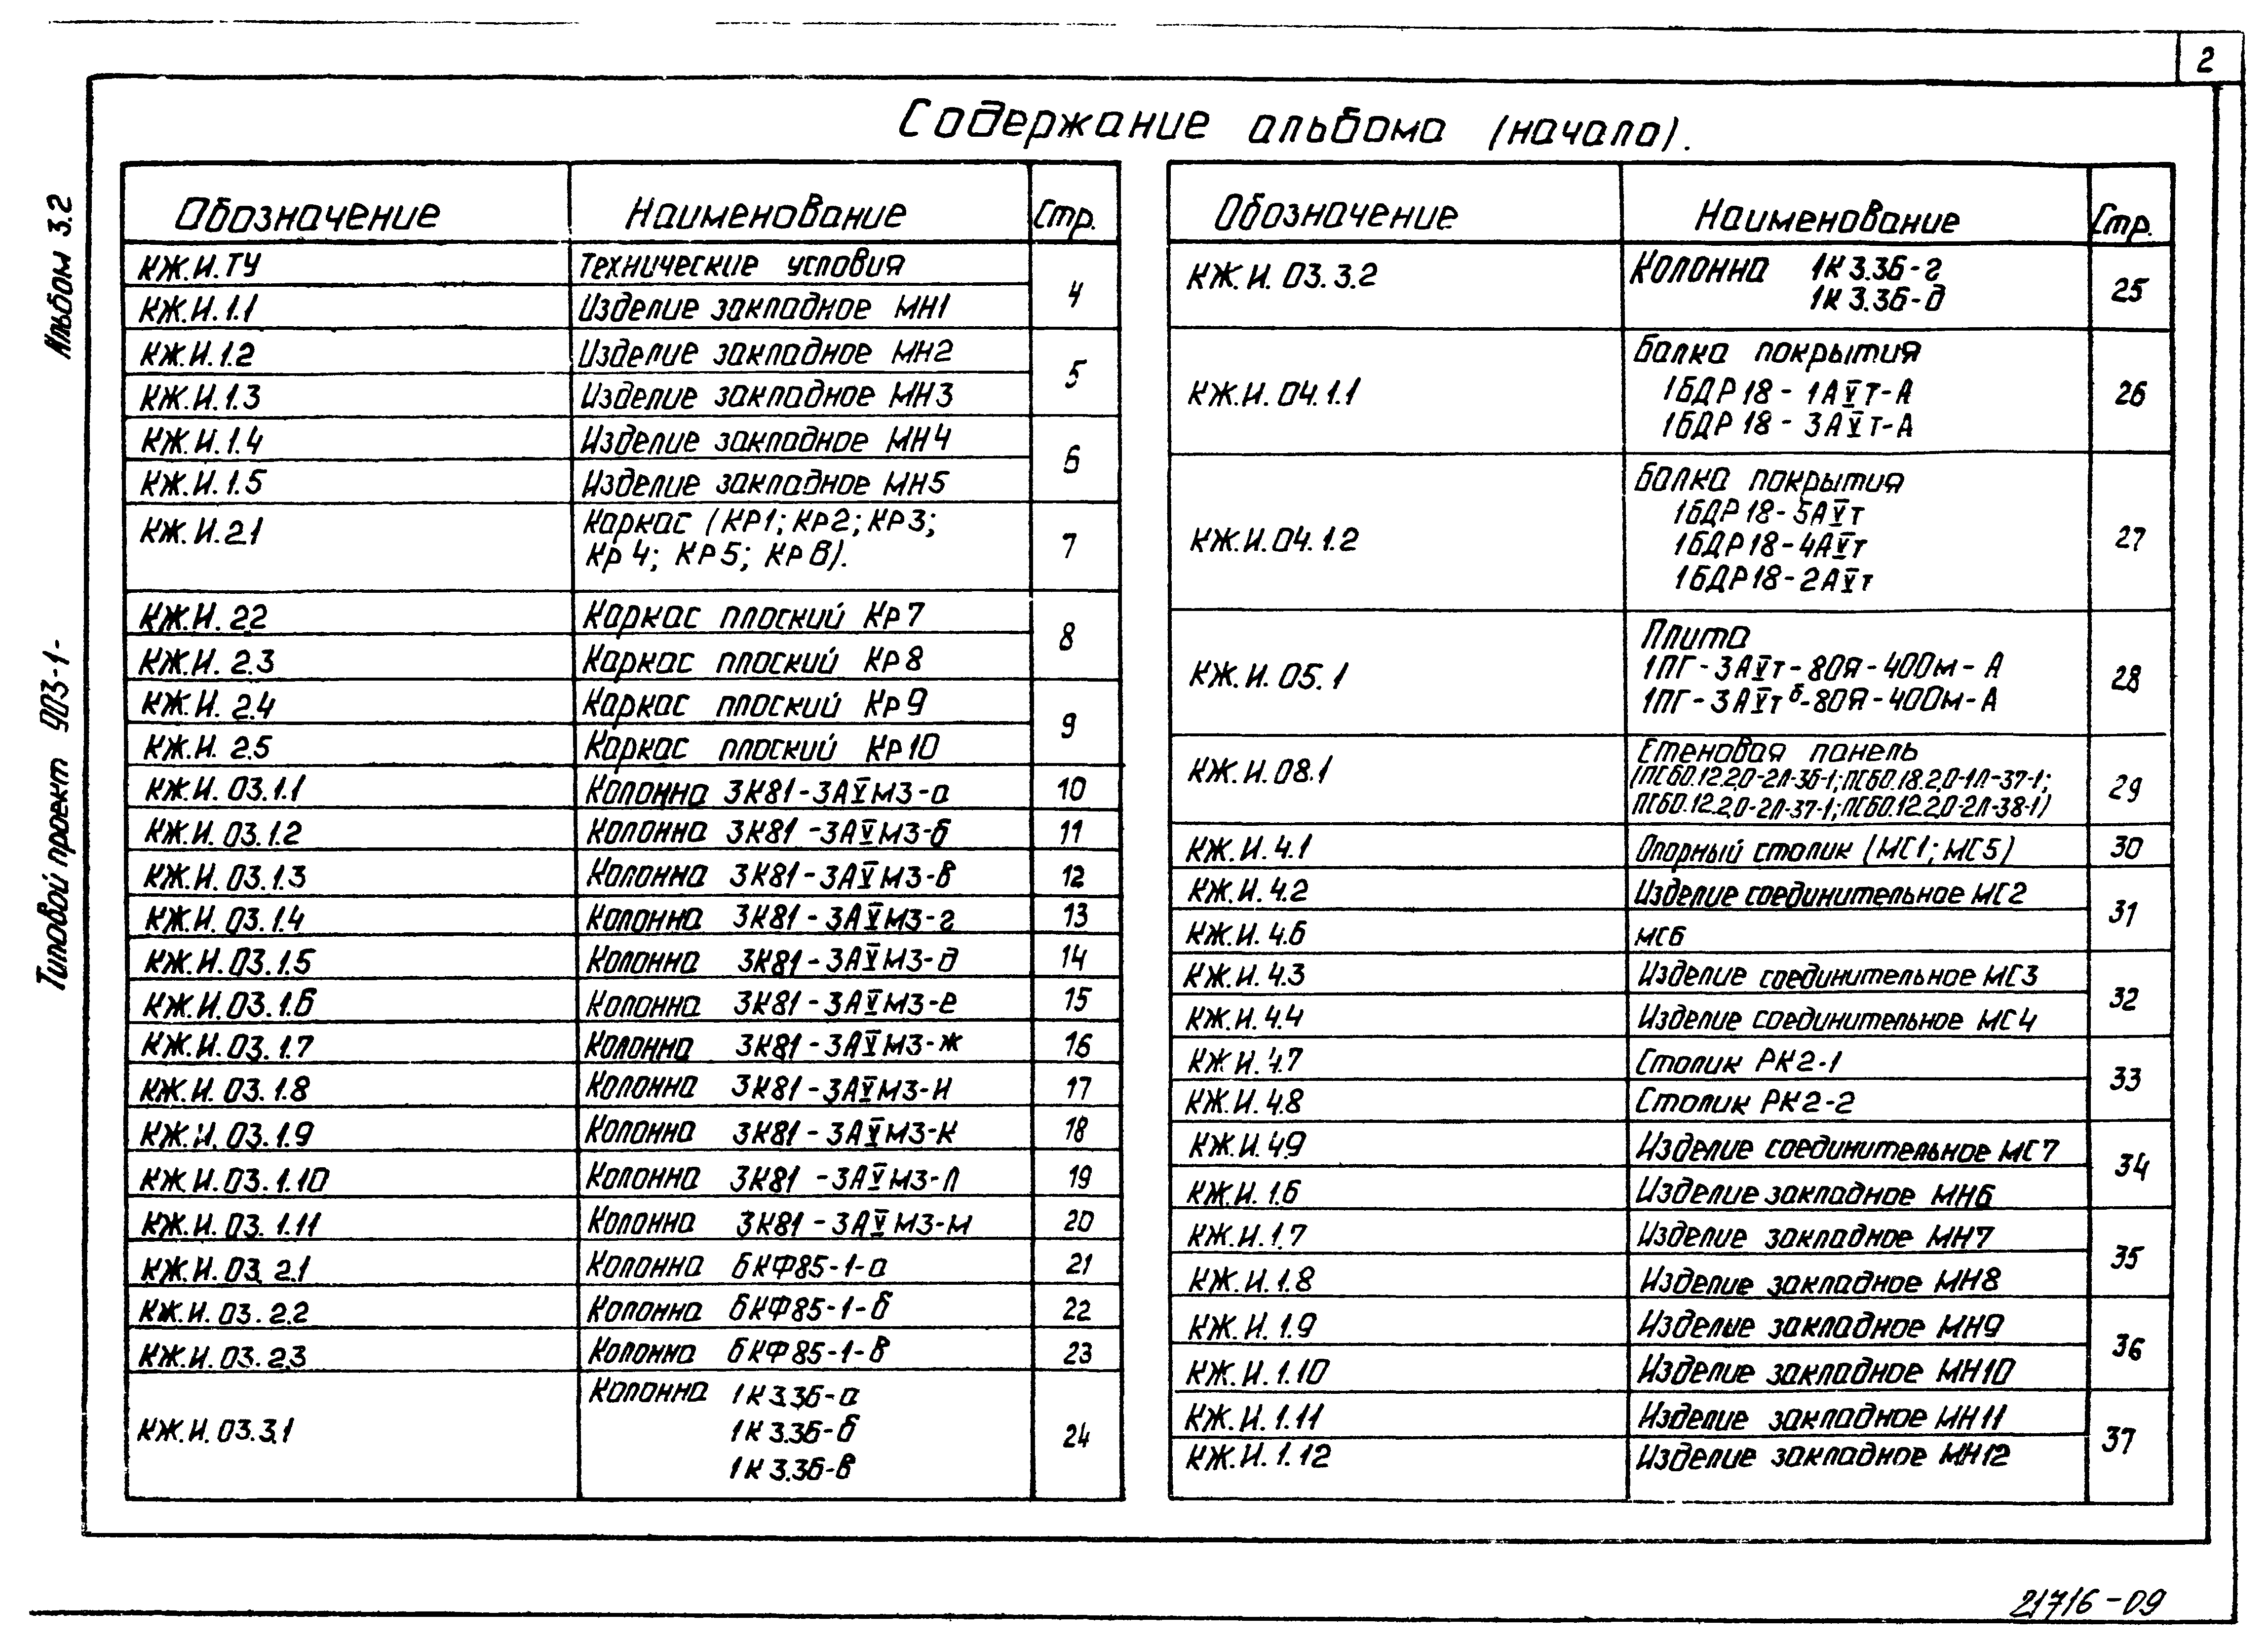 2
Содержание альбома (начало).
Альбом 3.2
Типовой проект 903-1-
Обозначение Наименование Стр.
КЖ.И.ТУ Технические условия 4
КЖ.И.1.1 Изделие закладное МН1
КЖ.И.1.2 Изделие закладное МН2 5
КЖ.И.1.3 Изделие закладное МН3
КЖ.И.1.4 Изделие закладное МН4 6
КЖ.И.1.5 Изделие закладное МН5
КЖ.И.2.1 Каркас (КР1; КР2; КР3; 7
Кр4; КР5; КР6).
КЖ.И.2.2 Каркас плоский Кр7 8
КЖ.И.2.3 Каркас плоский Кр8
КЖ.И.2.4 Каркас плоский Кр9 9
КЖ.И.2.5 Каркас плоский Кр10
КЖ.И.03.1.1 Колонна 3К81-3АVМ3-а 10
КЖ.И.03.1.2 Колонна 3К81-3АVМ3-б 11
КЖ.И.03.1.3 Колонна 3К81-3АVМ3-в 12
КЖ.И.03.1.4 Колонна 3К81-3АVМ3-г 13
КЖ.И.03.1.5 Колонна 3К81-3АVМ3-д 14
КЖ.И.03.1.6 Колонна 3К81-3АVМ3-е 15
КЖ.И.03.1.7 Колонна 3К81-3АVМ3-ж 16
КЖ.И.03.1.8 Колонна 3К81-3АVМ3-и 17
КЖ.И.03.1.9 Колонна 3К81-3АVМ3-к 18
КЖ.И.03.1.10 Колонна 3К81-3АVМ3-л 19
КЖ.И.03.1.11 Колонна 3К81-3АVМ3-м 20
КЖ.И.03.2.1 Колонна 6КФ85-1-а 21
КЖ.И.03.2.2 Колонна 6КФ85-1-б 22
КЖ.И.03.2.3 Колонна 6КФ85-1-в 23
КЖ.И.03.3.1 Колонна 1К3.36-а 24
1К3.36-б
1К3.36-в
Обозначение Наименование Стр.
КЖ.И.03.3.2 Колонна 1К3.36-г 25
1К3.36-д
КЖ.И.04.1.1 Балка покрытия 26
1БДР18-1АVт-А
1БДР18-3АVт-А
КЖ.И.04.1.2 Балка покрытия 27
1БДР18-5АVт
1БДР18-4АVт
1БДР18-2АVт
КЖ.И.05.1 Плита 28
1ПГ-3АVт-80Я-400м-А
1ПГ-3АVтб-80Я-400м-А
КЖ.И.08.1 Стеновая панель 29
(ПС60.12.2,0-2Л-36-1; ПС60.18.2,0-1Л-37-1;
ПС60.12.2,0-2Л-37-1; ПС60.12.2,0-2Л-38-1)
КЖ.И.4.1 Опорный столик (МС1; МС5) 30
КЖ.И.4.2 Изделие соединительное МС2 31
КЖ.И.4.6 МС6
КЖ.И.4.3 Изделие соединительное МС3 32
КЖ.И.4.4 Изделие соединительное МС4
КЖ.И.4.7 Столик РК2-1 33
КЖ.И.4.8 Столик РК2-2
КЖ.И.4.9 Изделие соединительное МС7 34
КЖ.И.1.6 Изделие закладное МН6
КЖ.И.1.7 Изделие закладное МН7 35
КЖ.И.1.8 Изделие закладное МН8
КЖ.И.1.9 Изделие закладное МН9 36
КЖ.И.1.10 Изделие закладное МН10
КЖ.И.1.11 Изделие закладное МН11 37
КЖ.И.1.12 Изделие закладное МН12
21716-09